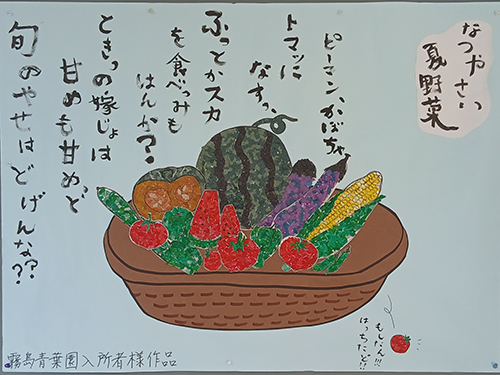 なつやさい
夏野菜
ピーマン、かぼちゃ
トマッに
なす、
ふっとかスカ
を食べっみも
はんか?
ときっの嫁じょは
甘めも甘め、と
旬のやせはどげんな??
もしたん!!!
はっちたど!!
霧島青葉園入所者様作品